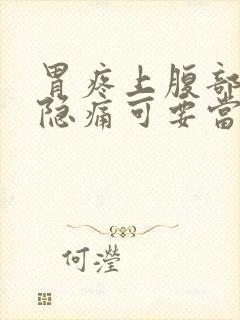 胃疼上腹部
隐痛可要當
何瀅